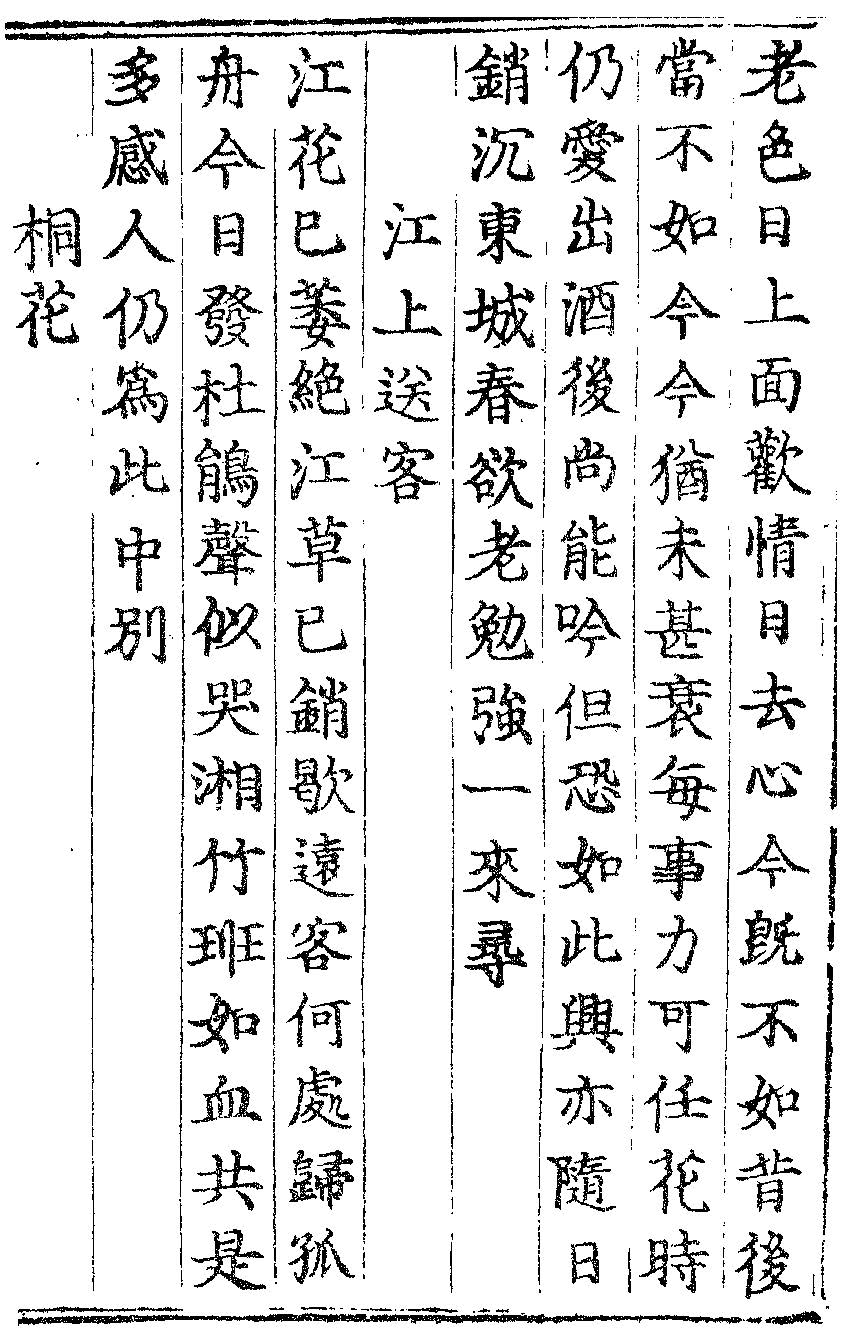 老色日上面歡情日去心今旣不如昔後
當不如今今猶未甚衰每事力可任花時
仍愛出酒後尚能吟但恐如此興亦隨日
銷沉東城春欲老勉強一來尋
江上送客
江花已萎絕江草已銷歇遠客何處歸孤
舟今日發杜鵑聲似哭湘竹班如血共是
多感人仍爲此中別
桐花